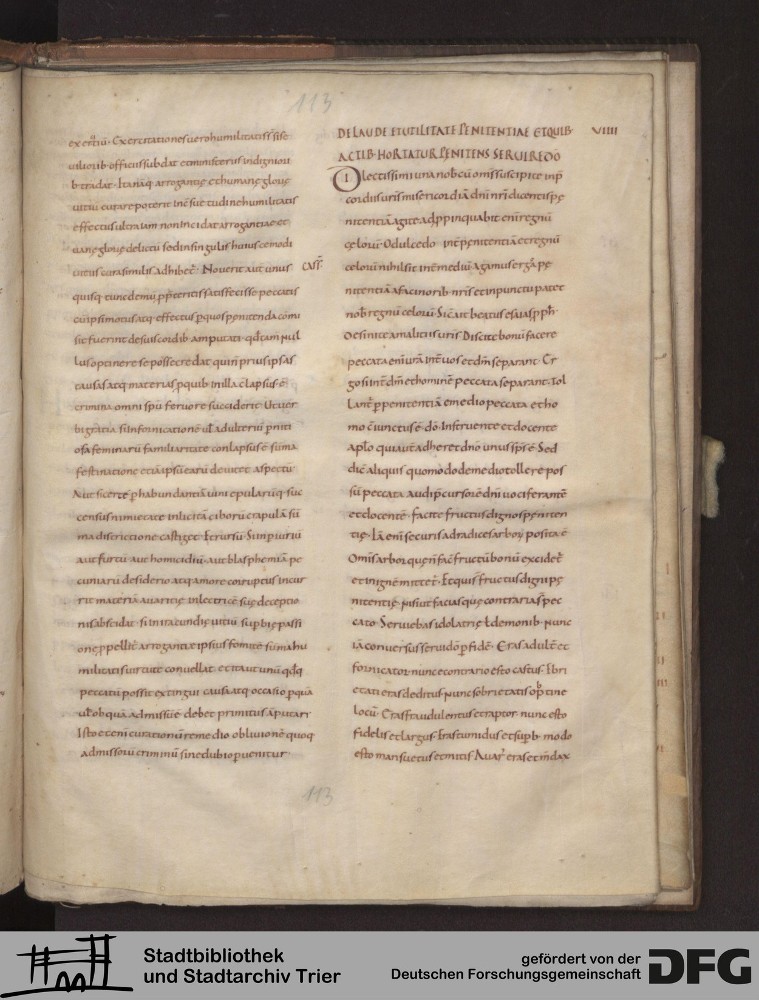 113
exertiũ· Exercitationes uero humilitatis si se
uilioribus officiis subdat et ministeriis indigniori
b· tradat· Ita namq· arrogantiȩ et humanȩ gloriȩ
uitiũ curare poterit
effectus ultra iam non incidat arrogantiae et
uanȩ gloriȩ delictũ sed in singulis huiuscemodi
uitiis cura similis adhibet̃· Nouerit aut̃ unus CASS̃
quisq· tunc demũ p̱p̱etritis satisfecisse peccatis
cũ ipsi motus atq· effectus p̱ quos pȩnitenda cõmi
sit fuerint de suis cordib· amputati· qđ tam̃ nul
lus optinere se posse credat qui ñ prius ipsas
causas atq· materias p̱ quib· in illa c̃lapsus·ẽ·
crimina omni sp̃u feruore succiderit· Ut uer
bi gratia si in fornicationẽ ul̃ adulteriũ
feminarũ familiaritate conlapsus·ẽ· sũma
festinatione etiã ipsũ earũ deuitet aspectũ·
Aut si certe p̱ habundantiã uini epularũq· suc
census nimietate inlicitȩ ciborũ crapulã sũ
ma districtione castiget· Et rursũ· Si in piuriũ
aut furtũ· aut homicidiũ· aut blasphemiã pe
cuniarũ desiderio atq· amore corruptus incur
rit materiã auaritiȩ inlectricẽ suȩ deceptio
nis abscidat· si in iracundiȩ uitiũ sup̱biȩ passi
one p̱pellit̃ arrogantiȩ ipsius fomitẽ sũma hu
militatis uirtute conuellat· et ita ut unũ qđq·
peccatũ possit extingui· causa atq· occasio p̱ quã
ul̃ ob quã admissũ·ẽ· debet primitus ãputari
Isto etenĩ curationũ remedio obliuionẽ quoq·
admissorũ criminũ sine dubio p̱uenitur·
DE LAUDE ET UTILITATE PENITENTIAE ET QUIB· VIIII
ACTIB· HORTATUR PENITENS SERUIRE DÕ
lectissimi una nobcũ om̃s suscipite
cordis uiris misericordiã dñi nr̃i dicentis pȩ
nitentiã agite adp̱pinquabit enĩ regnũ
cȩlorũ· O dulcedo· int̃ pȩnitentiã et regnũ
celorũ nihil sit int̃ mediũ· agamus erg̃ pȩ
nitentiã a facinorib· nr̃is et in puncto patet
nob· regnũ celorũ· Sic ait beatus esaias p̱ph·
Desinite a malitiis uris· Discite bonũ facere
peccata enĩ urã int̃ uos et dm̃ separant· Er
go si int̃ dm̃ et hominẽ peccata separant· Tol
lant̃ p̱ penitentiã e medio peccata et ho
mo c̃iunctus·ẽ· dõ· Instruente et docente
apl̃o qui aut̃ adheret dño unus sp̃s·ẽ· Sed
dic̃ aliquis quomodo de medio tollere pos
sũ peccata· Audi p̱cursorẽ dñi uociferantẽ
et docentẽ· facite fructus dignos pȩniten
tiȩ· Iã enĩ securis ad radices arborũ posita·ẽ·
Omis arbor quȩ ñ fac̃ fructũ bonũ excidet̃
et in ignẽ mittet̃· Et quis fructus dignũ pȩ
nitentiȩ nisi ut facias quȩ contraria s̃ pec
cato· Seruiebas idolatriȩ t demonib· Nunc
iã conuersus serui dõ p̱ fidẽ· Eras adult̃ et
fornicator nunc e contrario esto castus· Ebri
etati eras deditus· Nunc sobrietatis optine
locũ· Eras fraudulentus et raptor· nunc esto
fidelis et largus· Eras tumidus et sup̱b· modo
esto mansuetus et mitis· Auar̃ eras et m̃dax
113
Stadtbibliothek
und Stadtarchiv Trier
gefördert von der
Deutschen Forschungsgemeinschaft
DFG